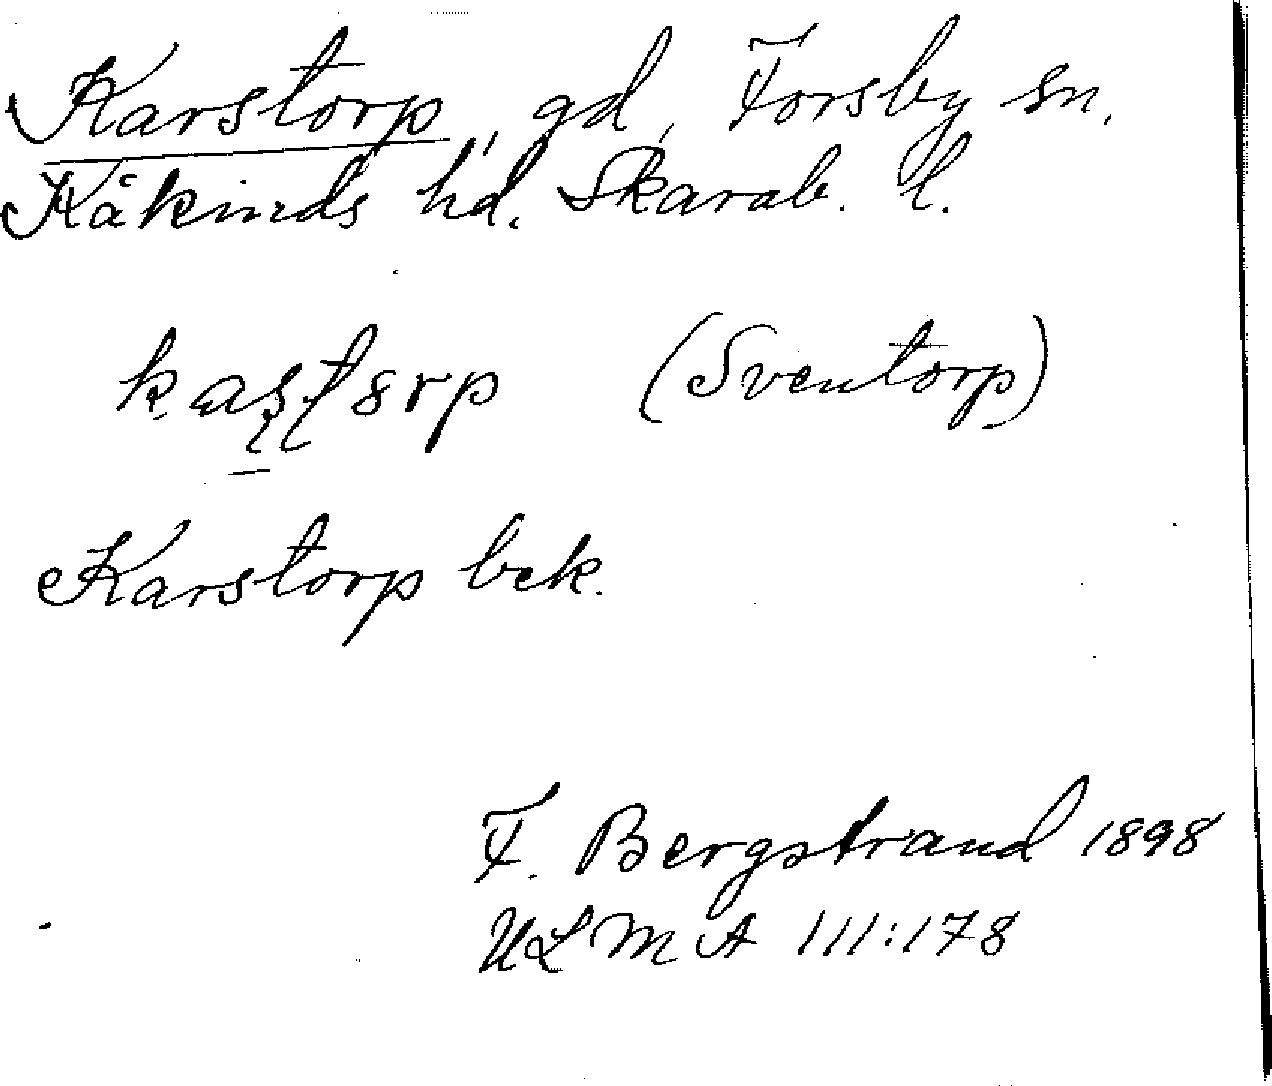 Karstorp, gd, Forsby sn,
Kåkinds hd. Skarab. l.
kaʂʈɞrp (Sventorp)
Karstorp bek.
F. Bergstrand 1898
ULMA 111:178